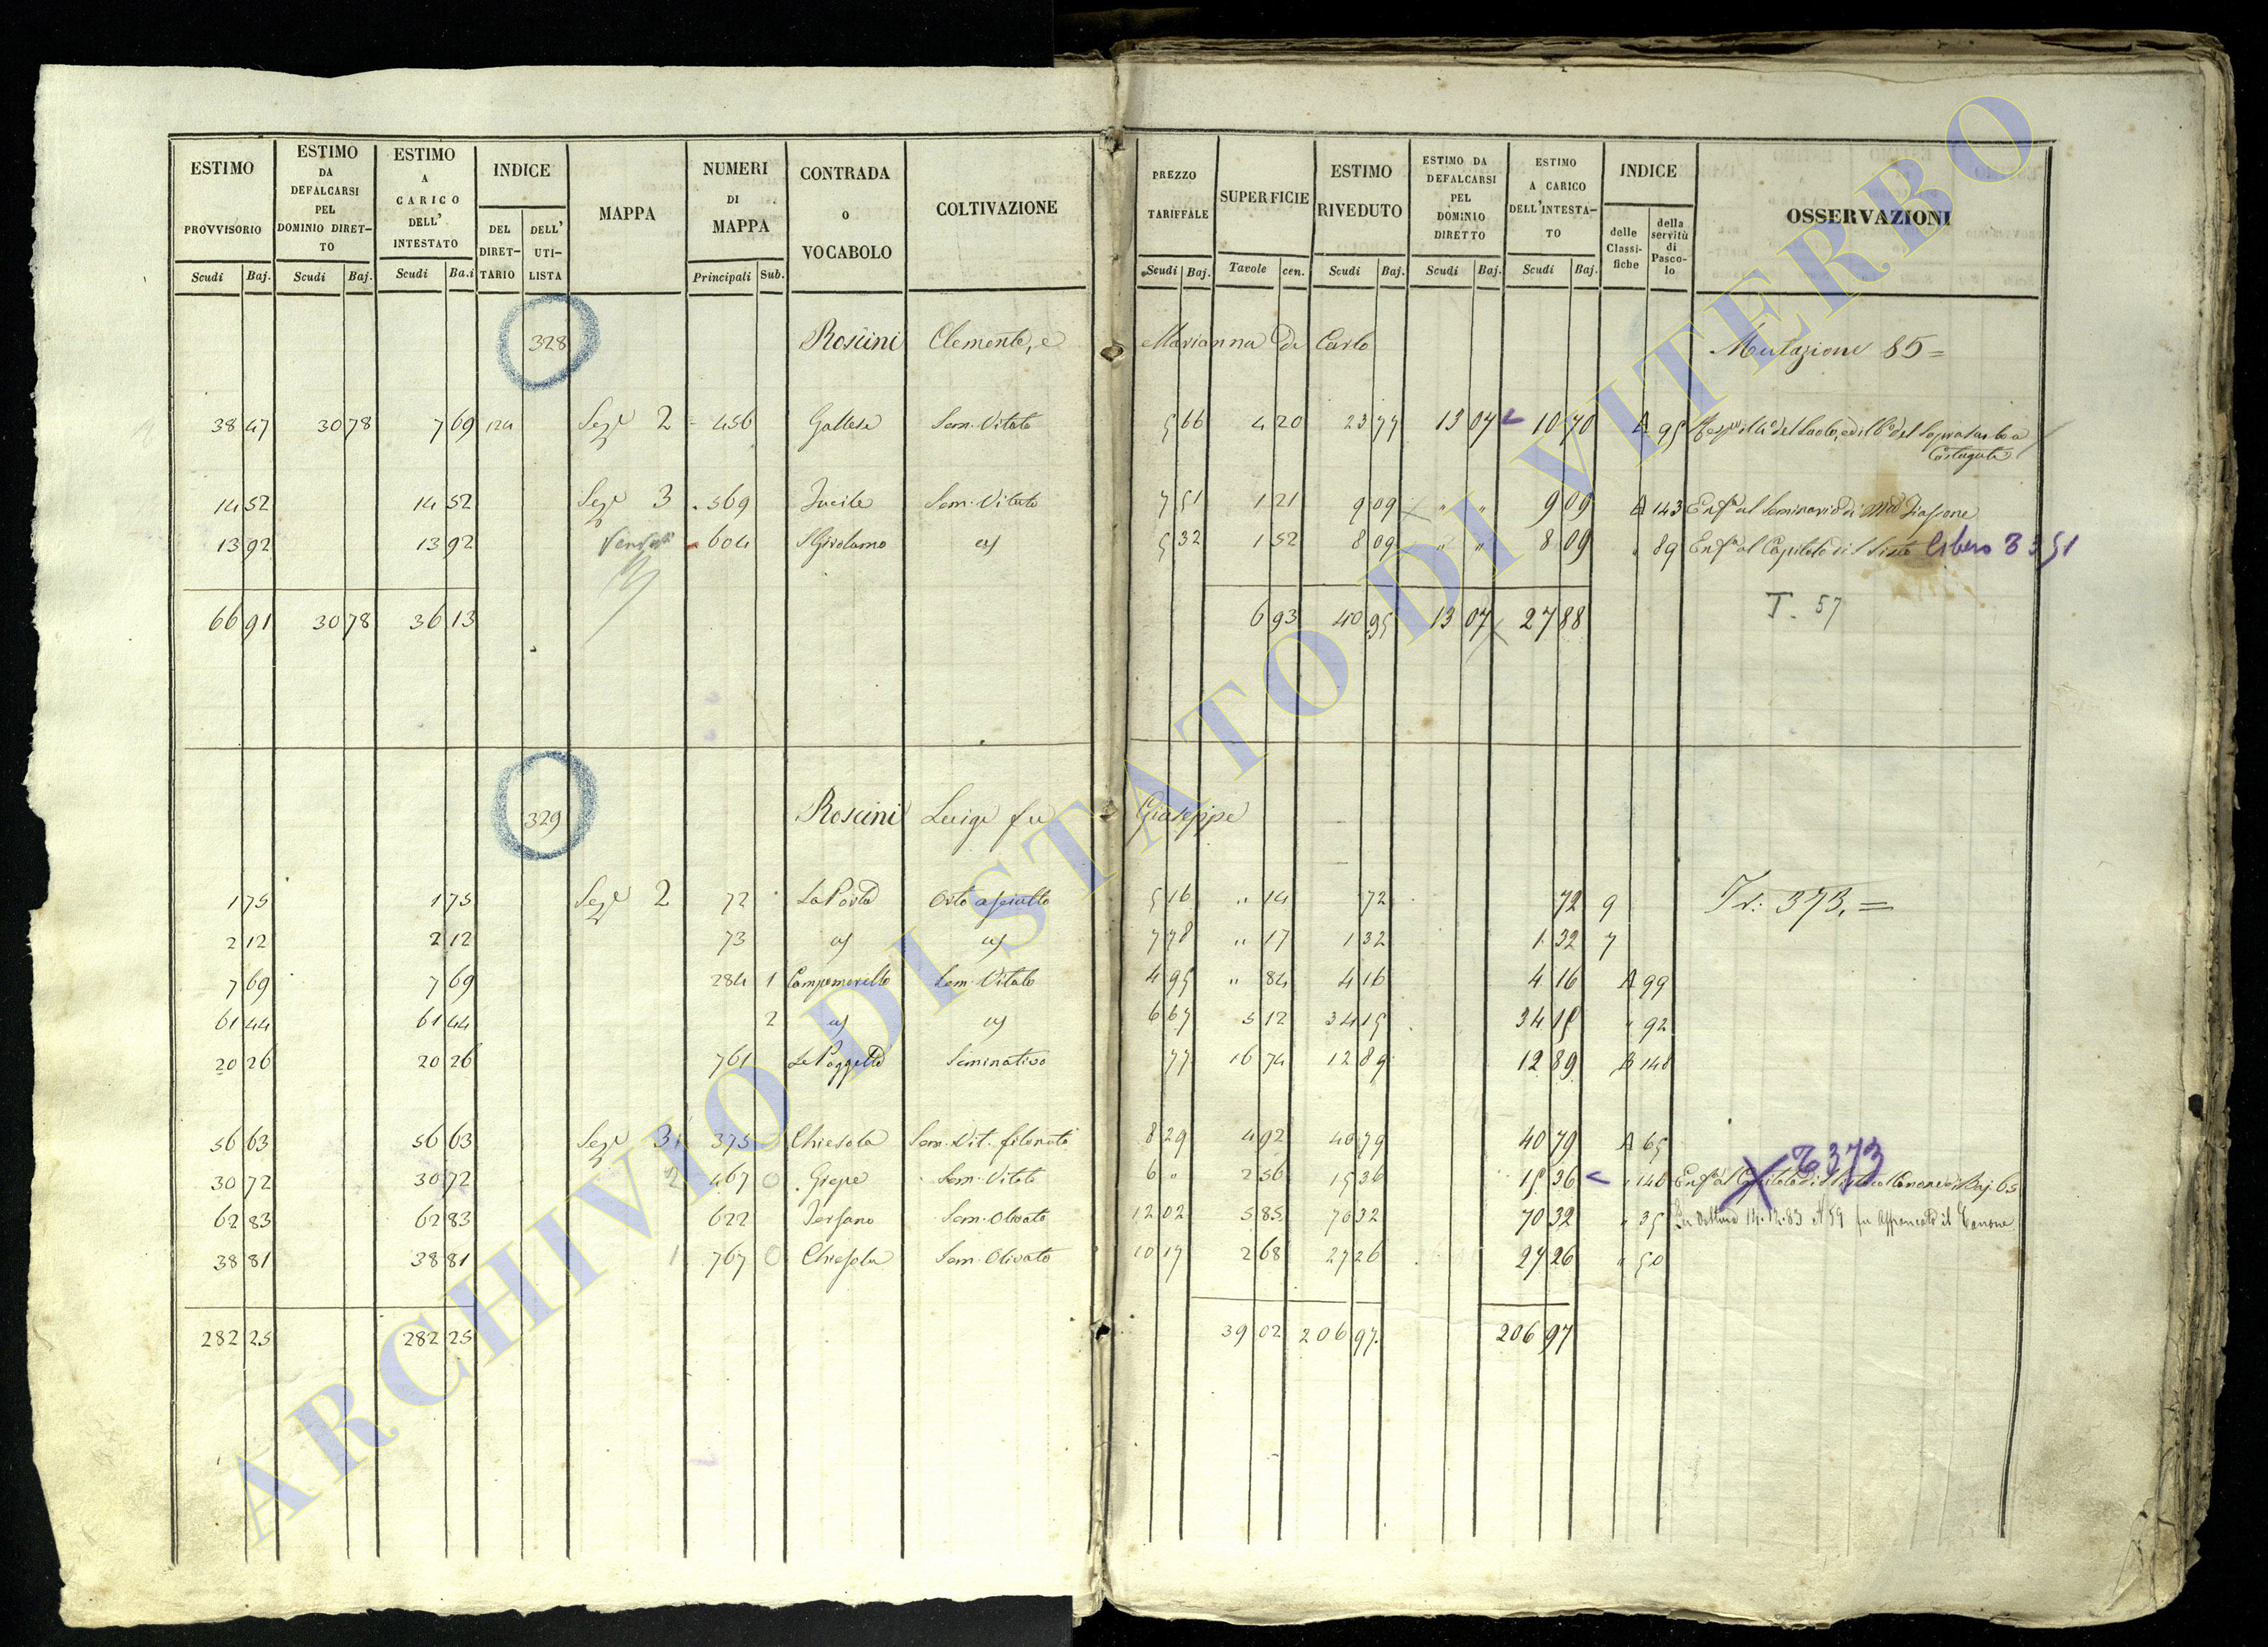 ESTIMO PROVVISORIO Scudi Baj.
ESTIMO DA DEFALCARSI PEL DOMINIO DIRET-TO Scudi Baj.
ESTIMO A CARICO DELL' INTESTATO Scudi Ba.i
INDICE DEL DIRET-TARIO DELL' UTI-LISTA
MAPPA
NUMERI DI MAPPA Principali Sub.
CONTRADA O VOCABOLO
COLTIVAZIONE
PREZZO TARIFFALE Scudi Baj.
SUPERFICIE Tavole cen.
ESTIMO RIVEDUTO Scudi Baj.
ESTIMO DA DEFALCARSI PEL DOMINIO DIRETTO Scudi Baj.
ESTIMO A CARICO DELL'INTESTA-TO Scudi Baj.
INDICE delle Classi-fiche della servitù di Pasco-lo
OSSERVAZIONI
328 Roscini Clemente, e Marianna di Carlo Mutazione 85 =
38 47 30 78 7 69 124 Sezе 2 456 Gallese Sem. Vitato 5 66 4 20 23 77 13 07 10 70 A 95
14 52 14 52 Sezе 3 569 Sem. Vitato 7 51 1 21 9 09 " " 9 09 A 143 Enfa al Seminario di
13 92 13 92 604 S Girolamo 5 32 1 52 8 09 " " 8 09 " 89 Enfa al Capitolo di S Sisto libero 3351
66 91 30 78 36 13 6 93 40 95 13 07 27 88 T. 57
329 Roscini Luigi fu Giuseppe
1 75 1 75 Sezе 2 72 La Porta Orto asciutto 5 16 " 14 72 72 9 Tr: 373. =
2 12 2 12 73 7 78 " 17 1 32 1 32 7
7 69 7 69 284 1 Campomorello Sem. Vitato 4 95 " 84 4 16 4 16 A 99
61 44 61 44 2 6 67 5 12 34 15 34 15 " 92
20 26 20 26 761 Le Poggette Seminativo 77 16 74 12 89 12 89 B 148
56 63 56 63 Sezе 3 375 Chiesola Sem. Vit. filonato 8 29 4 92 40 79 40 79 A 65
30 72 30 72 2 467 Grepe Sem. Vitato 6 " 2 56 15 36 15 36 " 146 Enfa al Capitolo di Baj. 65
373
62 83 62 83 622 Sem. Olivato 12 02 5 85 70 32 70 32 " 35 14.12.83 fu affrancato il Canone
38 81 38 81 1 767 Chiesola Sem. Olivato 10 17 2 68 27 26 27 26 " 50
282 25 282 25 39 02 206 97 206 97
ARCHIVIO DI STATO DI VITERBO